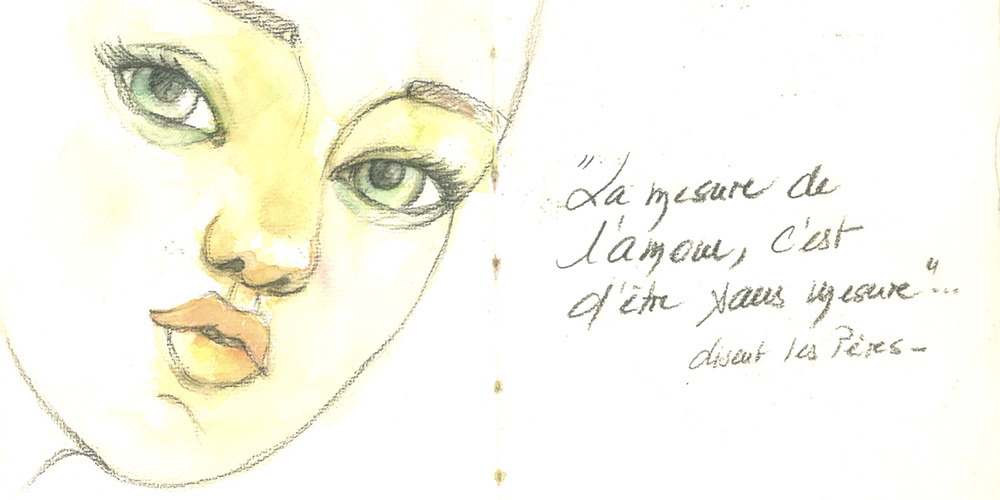 "La mesure de
l'amour, c'est
d'être sans mesure"...
disent les Pères-